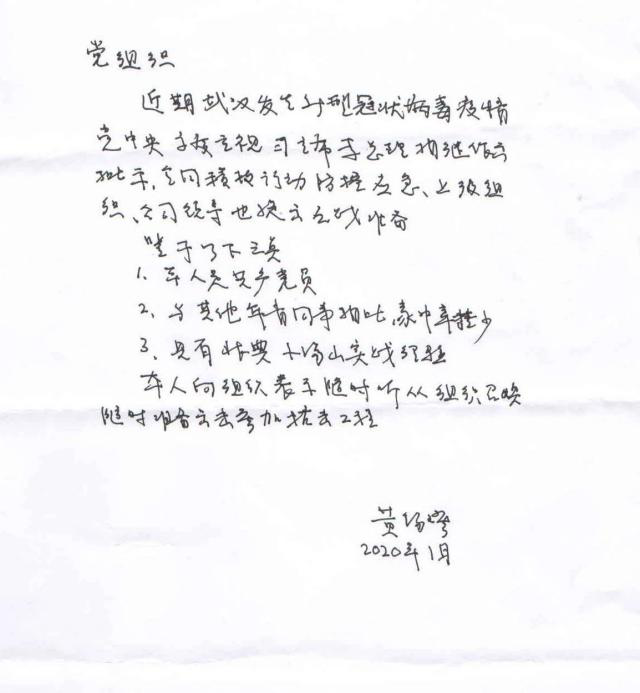 党组织
近期武汉发生新型冠状病毒疫情
党中央高度重视 习主席李总理相继作出
批示,全国积极行动防控应急、上级组
织、公司领导也发出应战准备
鉴于以下三点
1. 本人是共产党员
2. 与其他年青同事相比,家中牵挂少
3. 具有 小汤山实战经验
本人向组织表示随时听从组织召唤
随时准备出去参加抗击工程
黄
2020年1月